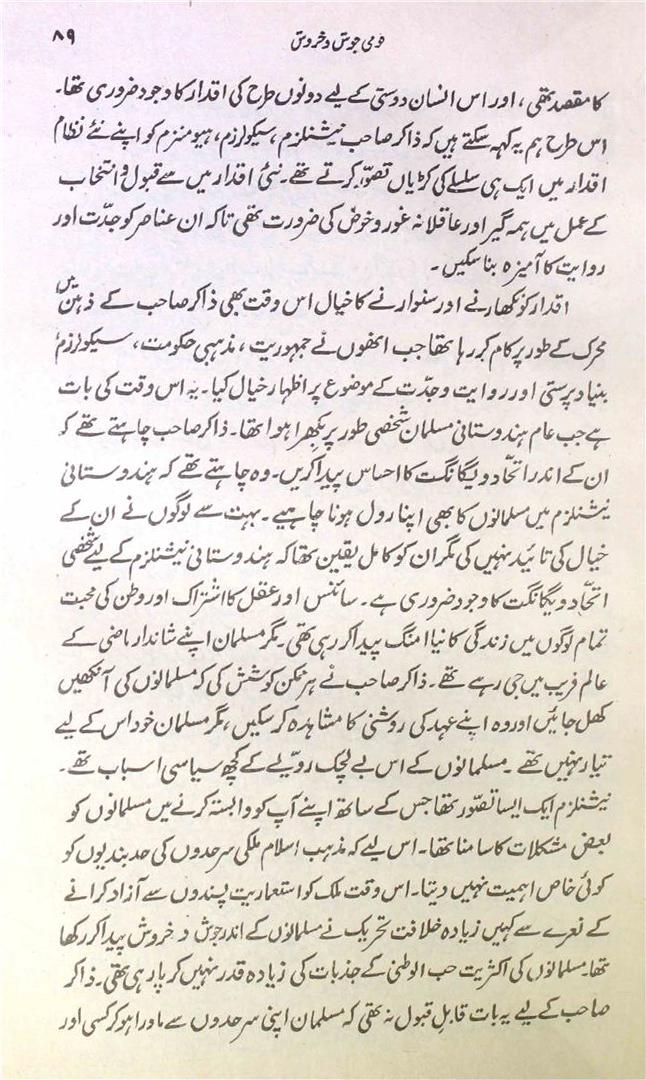 ۸۹
قومی جوش و خروش
کا مقصد تھی، اور اس انسان دوستی کے لیے دونوں طرح کی اقدار کا وجود ضروری تھا۔
اس طرح ہم یہ کہہ سکتے ہیں کہ ذاکر صاحب نیشنلزم، سیکولرزم، ہیومنزم کو اپنے نئے نظام
اقدار میں ایک ہی سلسلے کی کڑیاں تصوّر کرتے تھے۔ نئی اقدار میں سے قبول و انتخاب
کے عمل میں ہمہ گیر اور عاقلانہ غور و خوض کی ضرورت تھی تاکہ ان عناصر کو جدّت اور
روایت کا آمیزہ بنا سکیں۔
اقدار کو نکھارنے اور سنوارنے کا خیال اس وقت بھی ذاکر صاحب کے ذہن میں
محرک کے طور پر کام کر رہا تھا جب انھوں نے جمہوریت، مذہبی حکومت، سیکولرزم
بنیاد پرستی اور روایت و جدّت کے موضوع پر اظہار خیال کیا۔ یہ اس وقت کی بات
ہے جب عام ہندوستانی مسلمان شخصی طور پر بکھرا ہوا تھا۔ ذاکر صاحب چاہتے تھے کہ
ان کے اندر اتحّاد و یگانگت کا احساس پیدا کریں۔ وہ چاہتے تھے کہ ہندوستانی
نیشنلزم میں مسلمانوں کا بھی اپنا رول ہونا چاہیے۔ بہت سے لوگوں نے ان کے
خیال کی تائید نہیں کی مگر ان کو کامل یقین تھا کہ ہندوستانی نیشنلزم کے لیے شخصی
اتحّاد و یگانگت کا وجود ضروری ہے۔ سائنس اور عقل کا اشتراک اور وطن کی محبت
تمام لوگوں میں زندگی کا نیا امنگ پیدا کر رہی تھی۔ مگر مسلمان اپنے شاندار ماضی کے
عالم فریب میں جی رہے تھے۔ ذاکر صاحب نے ہر ممکن کوشش کی کہ مسلمانوں کی آنکھیں
کھل جائیں اور وہ اپنے عہد کی روشنی کا مشاہدہ کر سکیں، مگر مسلمان خود اس کے لیے
تیار نہیں تھے۔ مسلمانوں کے اس بے لچک رویّے کے کچھ سیاسی اسباب تھے۔
نیشنلزم ایک ایسا تصّور تھا جس کے ساتھ اپنے آپ کو وابستہ کرنے میں مسلمانوں کو
بعض مشکلات کا سامنا تھا۔ اس لیے کہ مذہب اسلام ملکی سرحدوں کی حد بندیوں کو
کوئی خاص اہمیت نہیں دیتا۔ اس وقت ملک کو استعماریت پسندوں سے آزاد کرانے
کے نعرے سے کہیں زیادہ خلافت تحریک نے مسلمانوں کے اندر جوش و خروش پیدا کر رکھا
تھا۔ مسلمانوں کی اکثریت حب الوطنی کے جذبات کی زیادہ قدر نہیں کر پا رہی تھی۔ ذاکر
صاحب کے لیے یہ بات قابلِ قبول نہ تھی کہ مسلمان اپنی سرحدوں سے ماورا ہو کر کسی اور